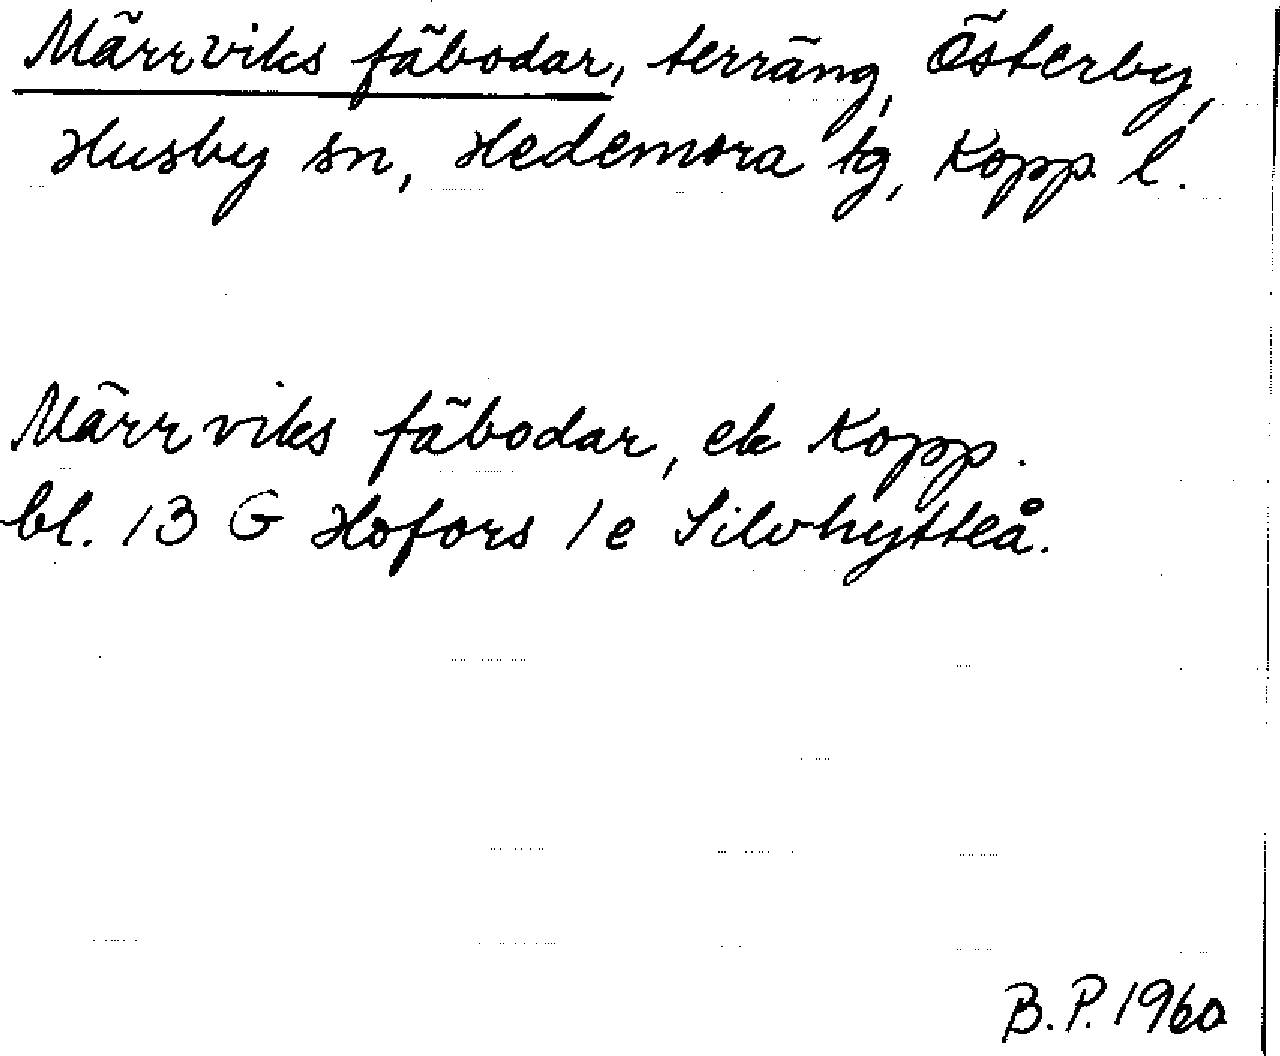 Märrviks fäbodar, terräng, Österby,
Husby sn, Hedemora tg, Kopp. l.
Märrviks fäbodar, ek Kopp.
bl. 13 G Hofors 1e Silvhytteå.
B.P. 1960